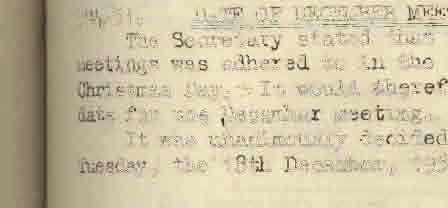 DATE OF DECEMBER MEE
The Secretary stated that
meetings was adhered to in the
Christmas Day. It would theref
date for the December meeting.
It was unanimously decided
Tuesday, the 18th December, 195